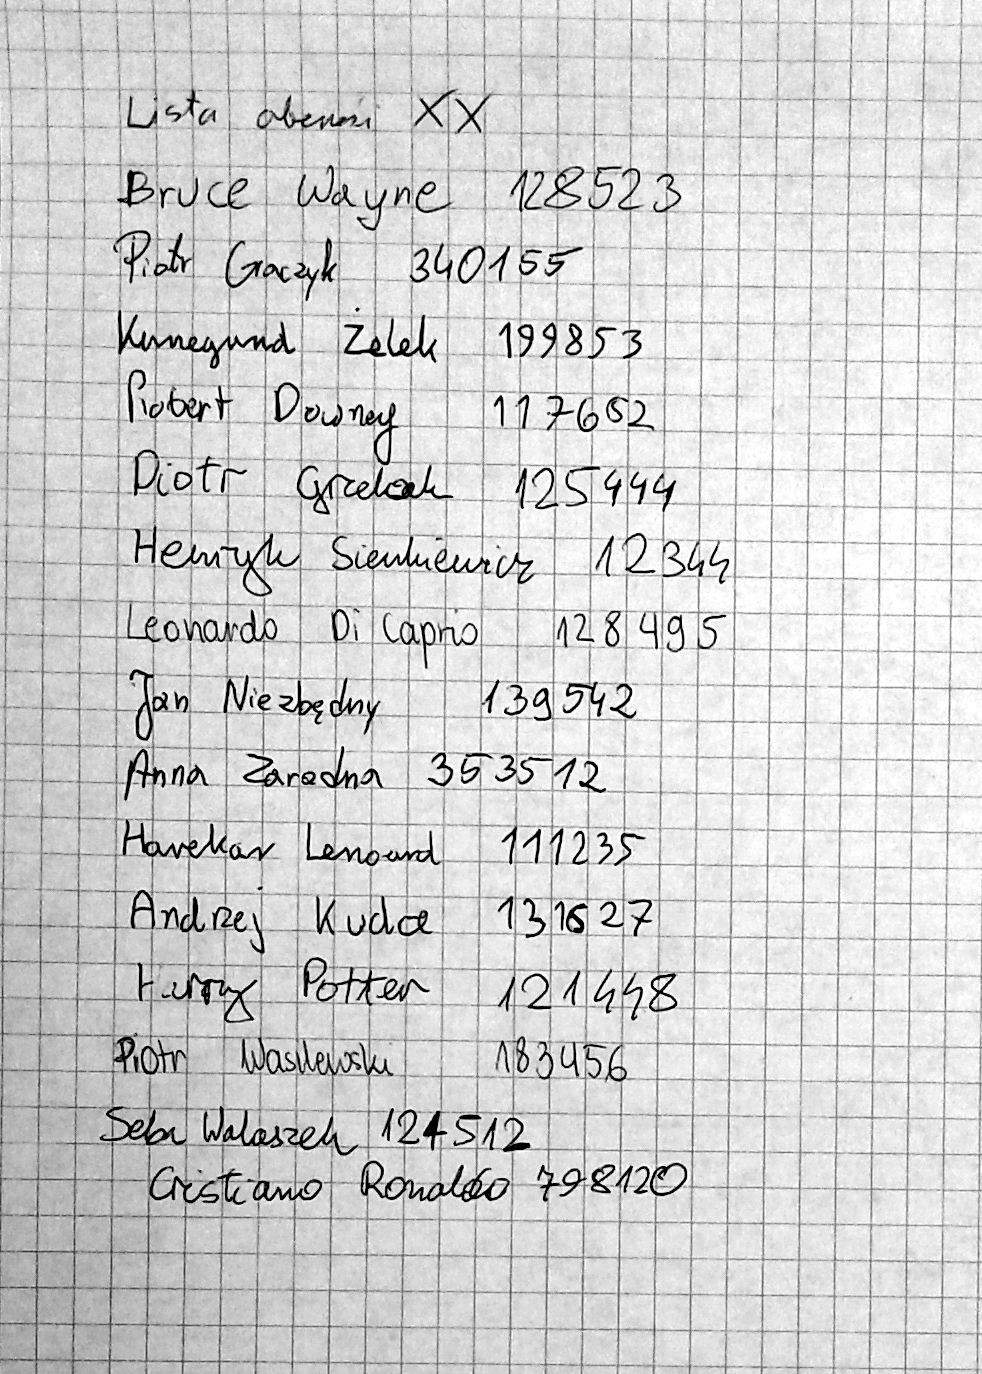 Lista obecności XX
Bruce Wayne 128523
Piotr Graczyk 340155
Kunegund Żelek 199853
Robert Downey 117652
Piotr Grzelak 125444
Henryk Sienkiewicz 12344
Leonardo Di Caprio 128495
Jan Niezbędny 139542
Anna Zaradna 353512
Havekar Lenoard 111235
Andrzej Kudra 131627
Harry Potter 121448
Piotr Wasilewski 183456
Seba Walaszek 124512
Cristiano Ronaldo 798120